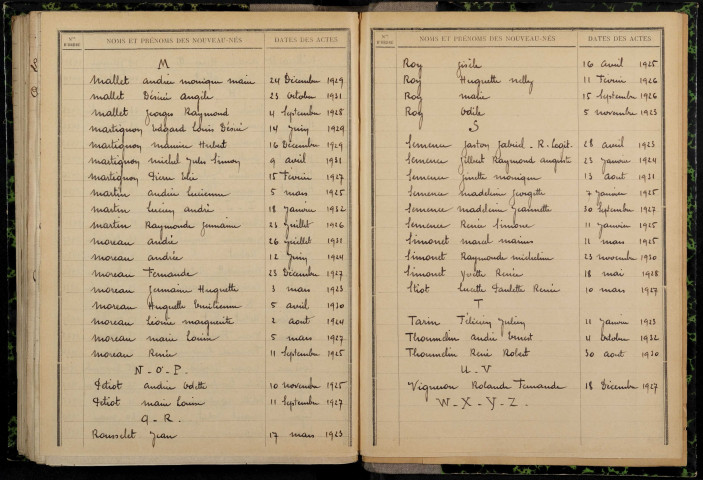 Nos D'ORDRE NOMS ET PRÉNOMS DES NOUVEAU-NÉS DATES DES ACTES
M
Mallet Andrée Monique Marie 24 Décembre 1929
Mallet Désiré Angèle 23 Octobre 1931
Mallet Georges Raymond 4 Septembre 1928
Martignon Edgard Louis Désiré 14 Juin 1929
Martignon Maurice Hubert 16 Décembre 1929
Martignon Michel Jules Simon 9 avril 1931
Martignon Pierre 15 Février 1927
Martin Andrée Lucienne 5 mars 1925
Martin Lucien André 18 Janvier 1932
Martin Raymonde Germaine 23 Juillet 1926
Moreau André 26 Juillet 1931
Moreau Andrée 12 Juin 1924
Moreau Fernande 23 Décembre 1927
Moreau Germaine Huguette 3 mars 1923
Moreau Huguette Emilienne 5 avril 1930
Moreau Léonie Marguerite 2 aout 1924
Moreau Marie Louise 5 mars 1927
Moreau Renée 11 Septembre 1925
N - O - P.
Petiot Andrée Odette 10 novembre 1925
Petiot Marie Louise 11 Septembre 1927
Q - R.
Rousselet Jean 17 mars 1923
Nos D'ORDRE NOMS ET PRÉNOMS DES NOUVEAU-NÉS DATES DES ACTES
Roy Gisèle 16 avril 1925
Roy Huguette Nelly 11 Février 1926
Roy Marie 15 Septembre 1926
Roy Odile 5 novembre 1923
S
Semence Gaston Gabriel - R - legit. 28 avril 1923
Semence Gilbert Raymond Auguste 23 Janvier 1924
Semence Ginette Monique 13 aout 1931
Semence Madeleine Georgette 7 Janvier 1925
Semence Madeleine Jeannette 30 Septembre 1927
Semence Renée Simone 11 Janvier 1925
Simonet Marcel Marius 11 mars 1925
Simonet Raymonde Micheline 23 novembre 1930
Simonet Yvette Renée 18 mai 1928
Stiot Lucette Paulette Renée 10 mars 1927
T
Tarin Félicien Julien 11 Janvier 1923
Thoumelin André Ernest 4 Octobre 1932
Thoumelin René Robert 30 aout 1930
U - V
Vigneron Rolande Fernande 18 Décembre 1927
W - X - Y - Z -